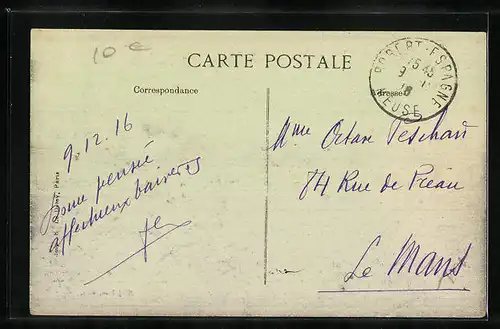 10 €
CARTE POSTALE
Correspondance
Adresse
ROBERT-ESPAGNE
15 45
9
MEUSE
9.12.16
Bonne pensée
affectueux baisers
Mme Octave
74 Rue de
Le Mans
Paris